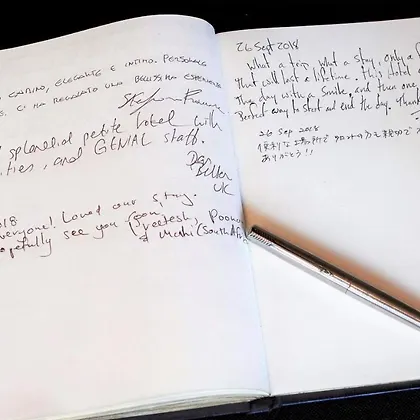 CARINO, ELEGANTE E INTIMO. PERSONALE
CI HA REGALATO UNA BELLISSIMA ESPERIENZA
splendid petite hotel with
ties, and GENIAL staff.
UK
018
everyone! Loved our stay.
hopefully see you soon,
Preetesh, Poonam
& Mahi (South Afri
26 Sept 2018
What a trip, what a stay, only a
that will last a lifetime. This hotel
the day with a smile, and then one
Perfect way to start and end the day. Than
26 Sep 2018
便利な場所で フロントの方も親切で
ありがとう!!